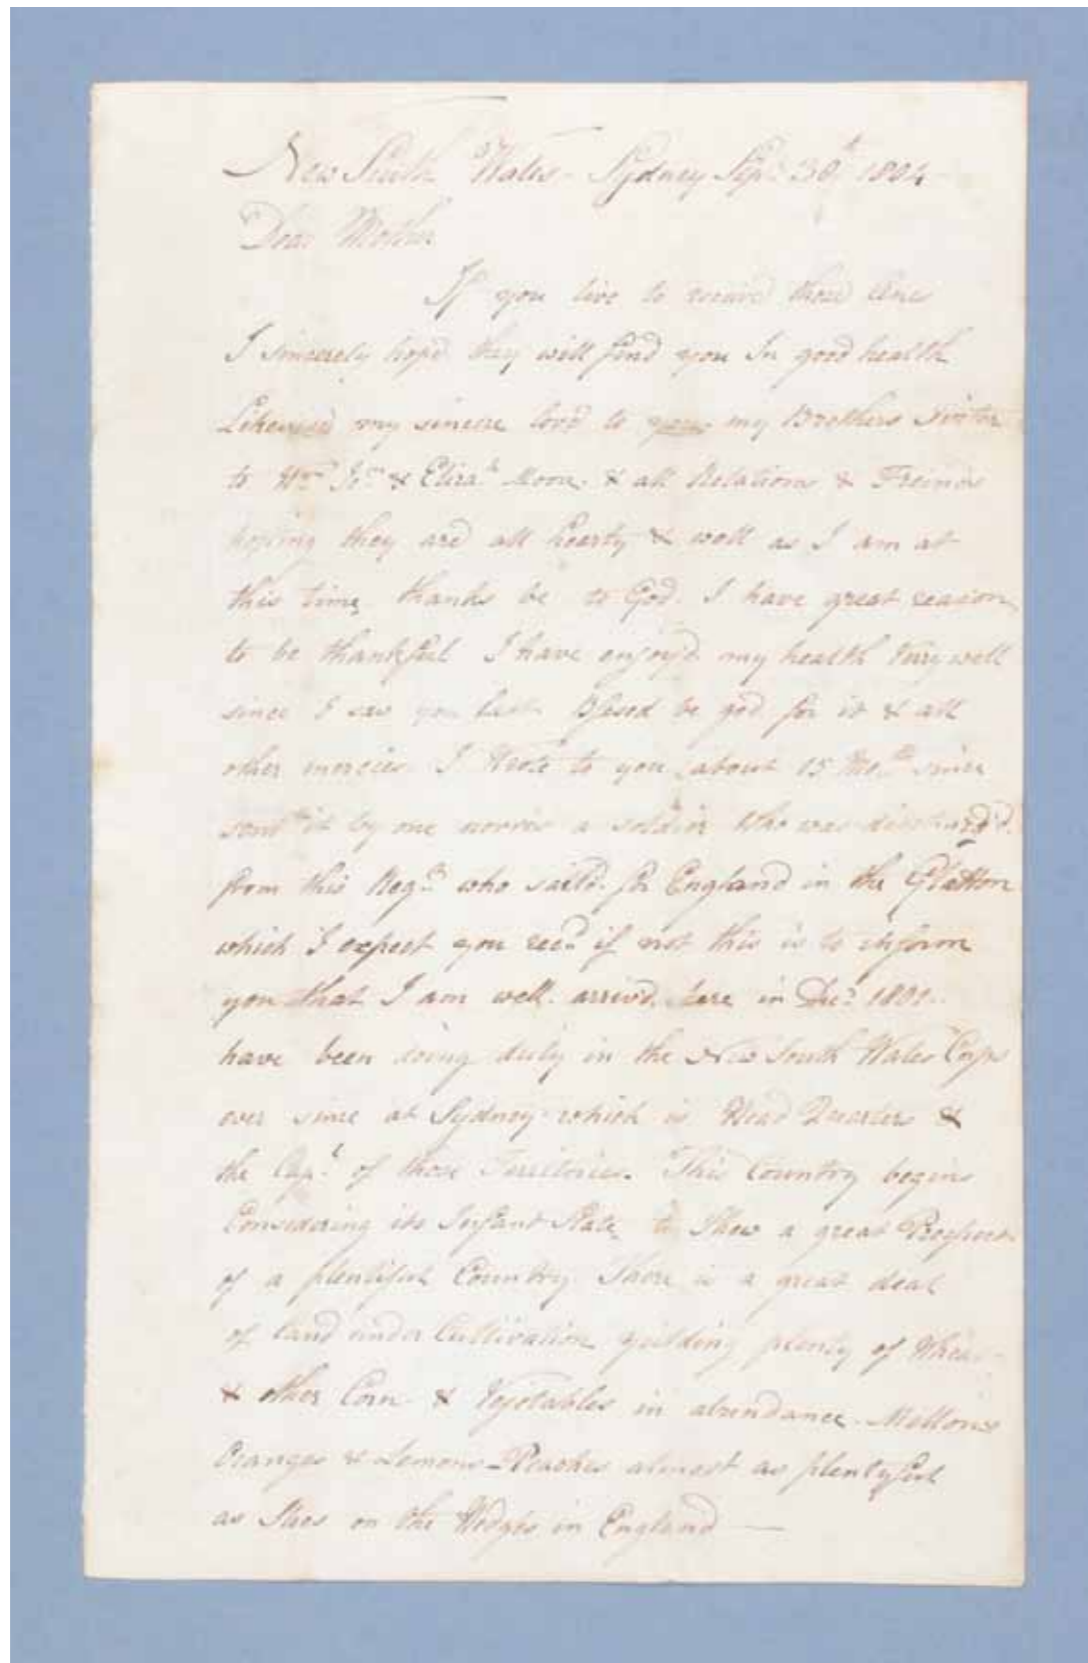 New South Wales - Sydney Sepr 30th 1804
Dear Mother
If you live to receive those lines
I sincerely hope they will find you In good health
Likewise my sincere love to you my Brothers Sister
to Wm Jno & Elizah Moon & all Relations & Freinds
hoping they are all hearty & well as I am at
this time thanks be to God. I have great reason
to be thankful I have enjoy'd my health very well
since I saw you last Blesed be god for it & all
other mercies. I Wrote to you about 15 Moths since
sent it by one norris a soldier Who was discharg'd
from this Regt who saild for England in the Glatton
which I expect you recd if not this is to inform
you that I am well. arriv'd here in Decr 1801.
have been doing duty in the New South Wales Corps
ever since at Sydney which is Head Quarters &
the Capl of those Territories. This Country begins
Considering its Infant State to Shew a great Prospect
of a plentiful Country. There is a great deal
of land under Cultivation yeilding plenty of Wheat
& other Corn & Vegetables in abundance. Mellons
Oranges & Lemons Peaches almost as plentyful
as Sloes on the Hedges in England